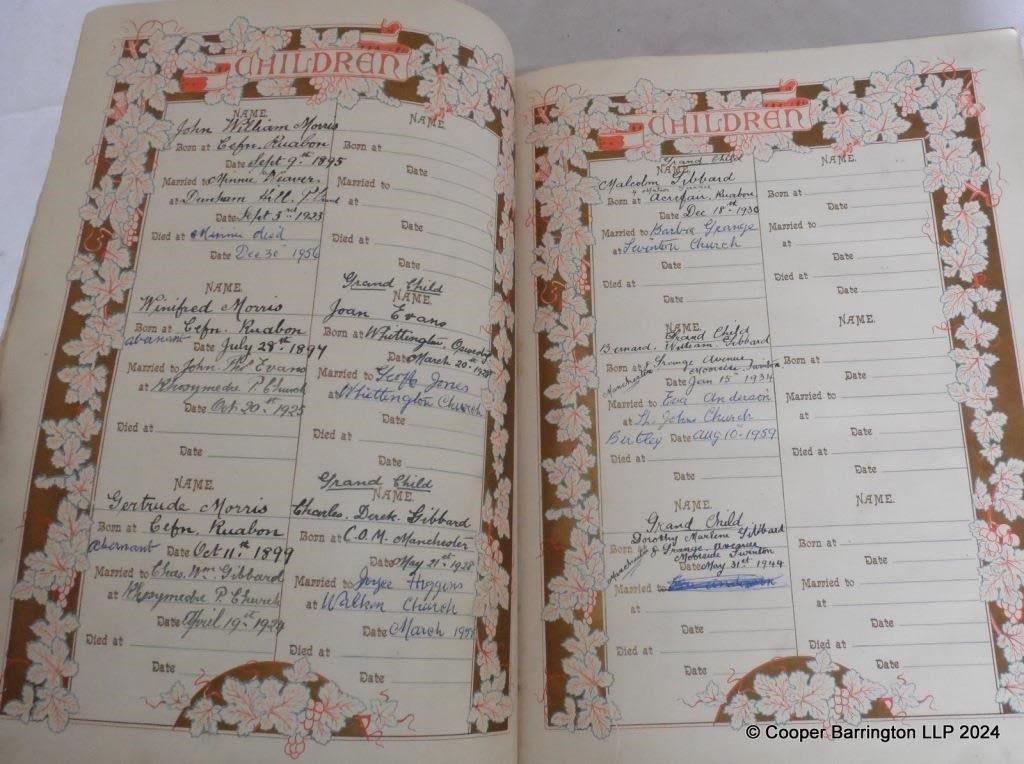 CHILDREN
NAME.
John William Morris
Born at Cefn. Ruabon
Date Sept 9th 1895
Married to Minnie Weaver.
at Dunham Hill.
Date Sept 3rd 1923
Died at Minnie died
Date Dec 30 1956
NAME.
Winifred Morris
Born at Cefn. Ruabon
Date July 28th 1897
Married to John Thos Evans
at Rhosymedre P. Church
Date Oct 20th 1925
Died at
Date
NAME.
Gertrude Morris
Born at Cefn. Ruabon
Date Oct 11th 1899
Married to Chas. Wm Gibbard
at Rhosymedre P. Church
Date April 19th
Died at
Date
NAME.
Born at
Date
Married to
at
Date
Died at
Date
Grand Child
NAME.
Joan Evans
Born at Whittington,
Date March 20th 1928
Married to Jones
at Whittington Church
Date
Died at
Date
Grand Child
NAME.
Charles. Derek. Gibbard
Born at C.O.M. Manchester
Date May 21st 1928
Married to Joyce Higgins
at Walkden Church
Date March
Died at
Date
CHILDREN
Grand Child
NAME.
Malcolm Gibbard
Born at Acrefair, Ruabon
Date Dec 18th 1930
Married to Barbra Grange
at Swinton Church
Date
Died at
Date
NAME.
Grand Child
Bernard. William. Gibbard
Born at 8 Grange Avenue
Manchester Moorside, Swinton
Date Jan 15th 1934
Married to Eva Anderson
at St. Johns Church
Birtley Date Aug 10th 1959
Died at
Date
NAME.
Grand Child
Dorothy Marlene Gibbard
Born at 8 Grange Avenue
Manchester Moorside Swinton
Date May 31st 1944
Married to
at
Date
Died at
Date
NAME.
Born at
Date
Married to
at
Date
Died at
Date
NAME.
Born at
Date
Married to
at
Date
Died at
Date
NAME.
Born at
Date
Married to
at
Date
Died at
Date
© Cooper Barrington LLP 2024